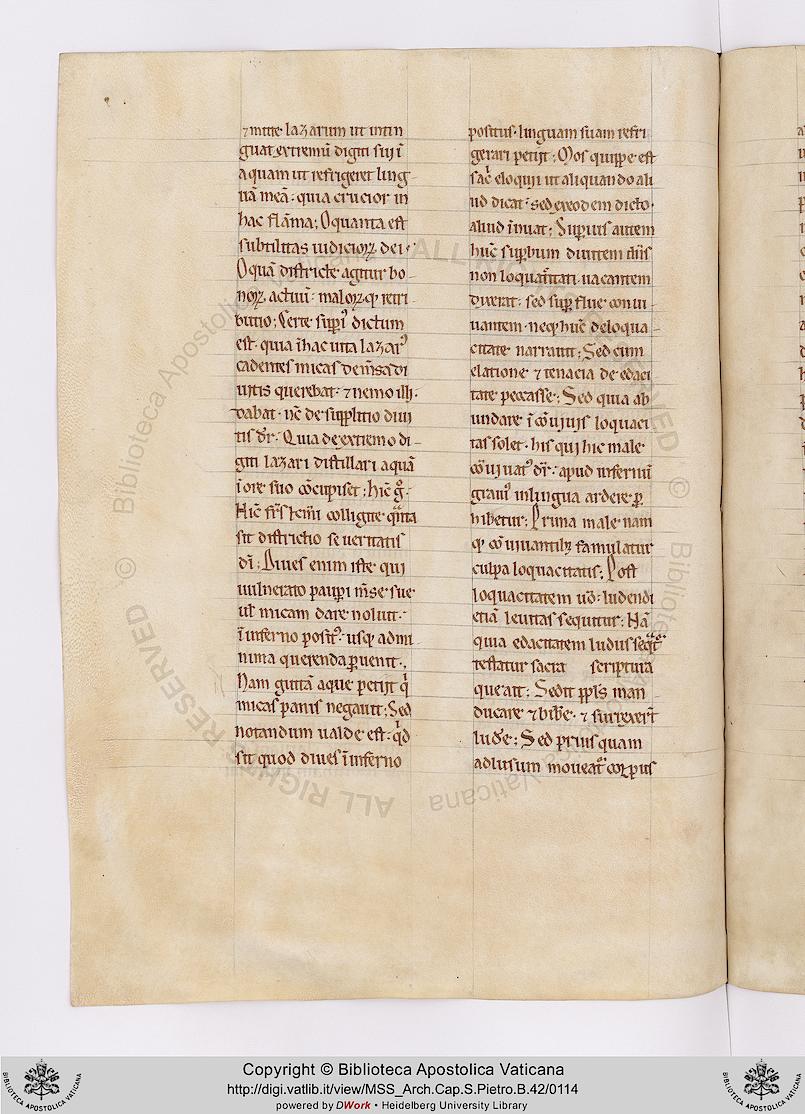 ⁊ mitte lazarum ut intin
guat extremū digiti sui ī
aquam ut refrigeret ling
uā meā· quia crucior in
hac flāma; O quanta est
subtilitas iudicioꝝ dei·
O quā districte agitur bo
noꝝ actuū· maloꝝꝗ retri
butio; Certe supͥ dictum
est· quia ī hac uita lazarꝰ
cadentes micas de mēsa di
uitis querebat· ⁊ nemo illi
dabat· nc̄ de supplitio diui
tis dr̄· Quia de extremo di
giti lazari distillari aquā
ī ore suo cōcupiset; hic̄ gͦ·
Hic̄ fr̄s km̄i colligite qͣnta
sit districtio seueritatis
dī; Diues enim iste qui
uulnerato paupi mēse sue
ul̄ micam dare noluit·
ī inferno positꝰ· usꝗ ad mi
nima querenda ꝑuenit·
Nam guttā aque petijt qͥ
micas panis negauit; Sed
notandum ualde est· qͥd
sit quod diues ī inferno
positus· linguam suam refri
gerari petijt; Mos quippe est
sac̄ eloquij ut aliquando ali
ud dicat· sed ex eodem dicto·
aliud īnuat; Supius autem
hūc supbum diuitem dn̄s
non loquaētati uacantem
dixerat· sed supflue conui
uantem· neꝗ hūc de loqua
citate narrauit; Sed cum
elatione ⁊ tenacia de edaci
tate peccasse; Sed quia ab
undare ī cōuiuijs loquaci
tas solet· his qui hic male
cōuiuatꝰ dr̄· apud infernū
grauiꝰ in lingua ardere ꝑ
hibetur; Pruna male nam
ꝗ cōuiuantibꝫ famulatur
culpa loquacitatis; Post
loquacitatem uō· ludendi
etiā leuitas sequitur; Nā
quia edacitatem ludus seqͣtͬ
testatur sacra scriptura
que ait; Sedit ppls man
ducare ⁊ bibe· ⁊ surrexert̄
lude; Sed prius quam
ad lusum moueatͬ corpus
Copyright © Biblioteca Apostolica Vaticana
http://digi.vatlib.it/view/MSS_Arch.Cap.S.Pietro.B.42/0114
powered by DWork • Heidelberg University Library
BIBLIOTECA APOSTOLICA VATICANA
BIBLIOTECA APOSTOLICA VATICANA
Biblioteca Apostolica Vaticana © ALL RIGHTS RESERVED ©